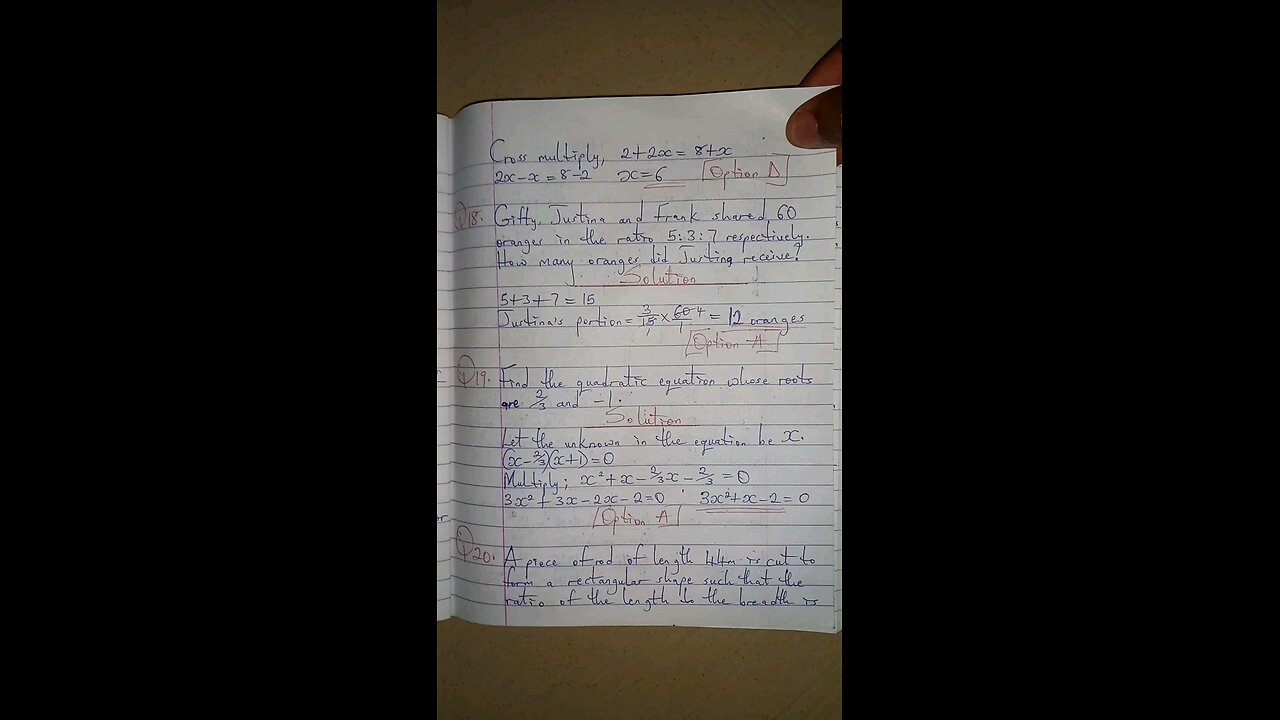 Cross multiply, 2+2x = 8+x
2x-x = 8-2 x=6 Option D
Q18. Gifty, Justina and Frank shared 60
oranges in the ratio 5:3:7 respectively.
How many oranges did Justina receive?
Solution
5+3+7 = 15
Justina's portion = 3/15 × 60/1 4 = 12 oranges
1
Option A
Q19. Find the quadratic equation whose roots
are 2/3 and -1.
Solution
Let the unknown in the equation be x.
(x-2/3)(x+1)=0
Multiply; x²+x-2/3x-2/3=0
3x²+3x-2x-2=0 3x²+x-2=0
Option A
Q20. A piece of rod of length 44m is cut to
form a rectangular shape such that the
ratio of the length to the breadth is